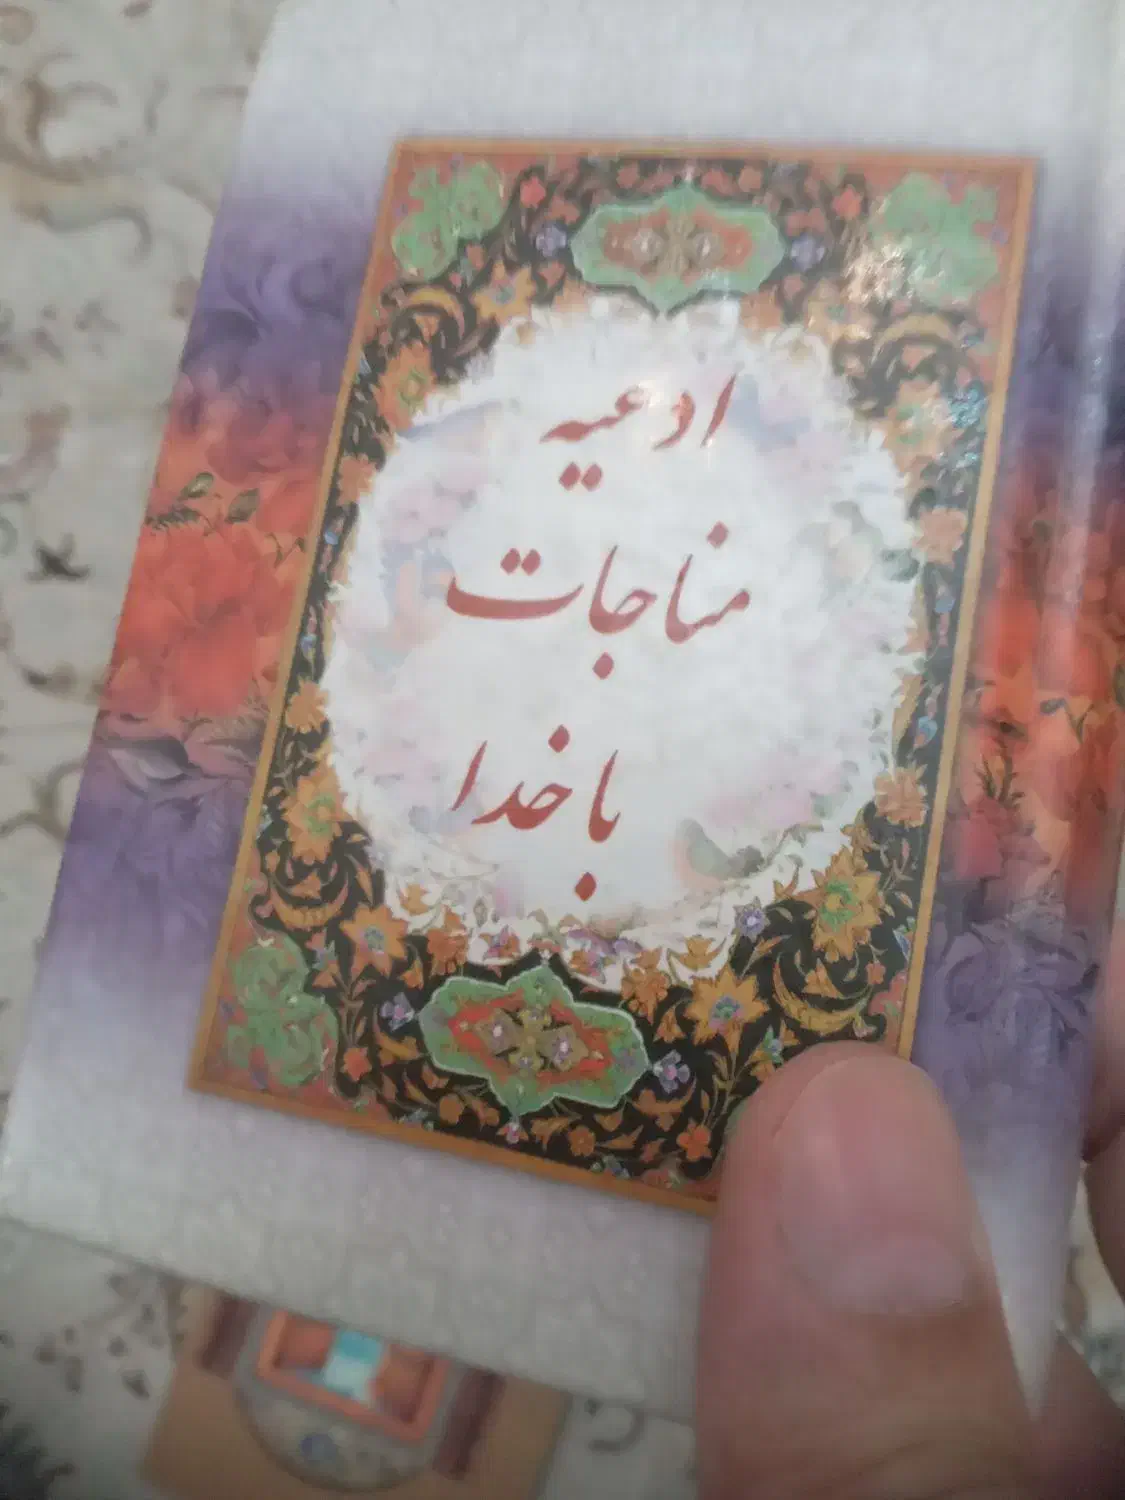 ادعیه
مناجات
با خدا